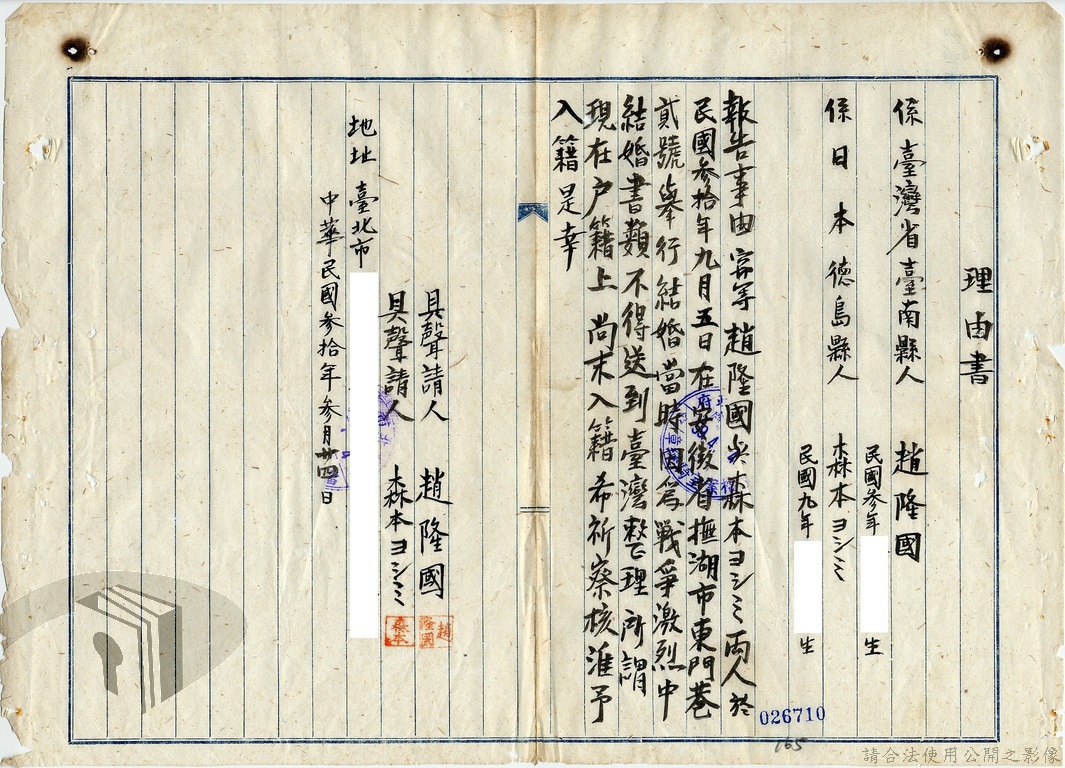 理由書
係臺灣省臺南縣人 趙隆國
民國參年 生
係日本德島縣人 森本ヨシミ
民國九年 生
報告事由 竊等趙隆國與森本ヨシミ両人於
民國參拾年九月五日在安徽省撫湖市東門巷
貳號舉行結婚當時因為戰爭激烈中
結婚書類不得送到臺灣整理所謂
現在户籍上尚未入籍希祈察核准予
入籍是幸
具聲請人 趙隆國
具聲請人 森本ヨシミ
趙隆國
森本
地址 臺北市
中華民國參拾年參月廿四日
026710
165
請合法使用公開之影像